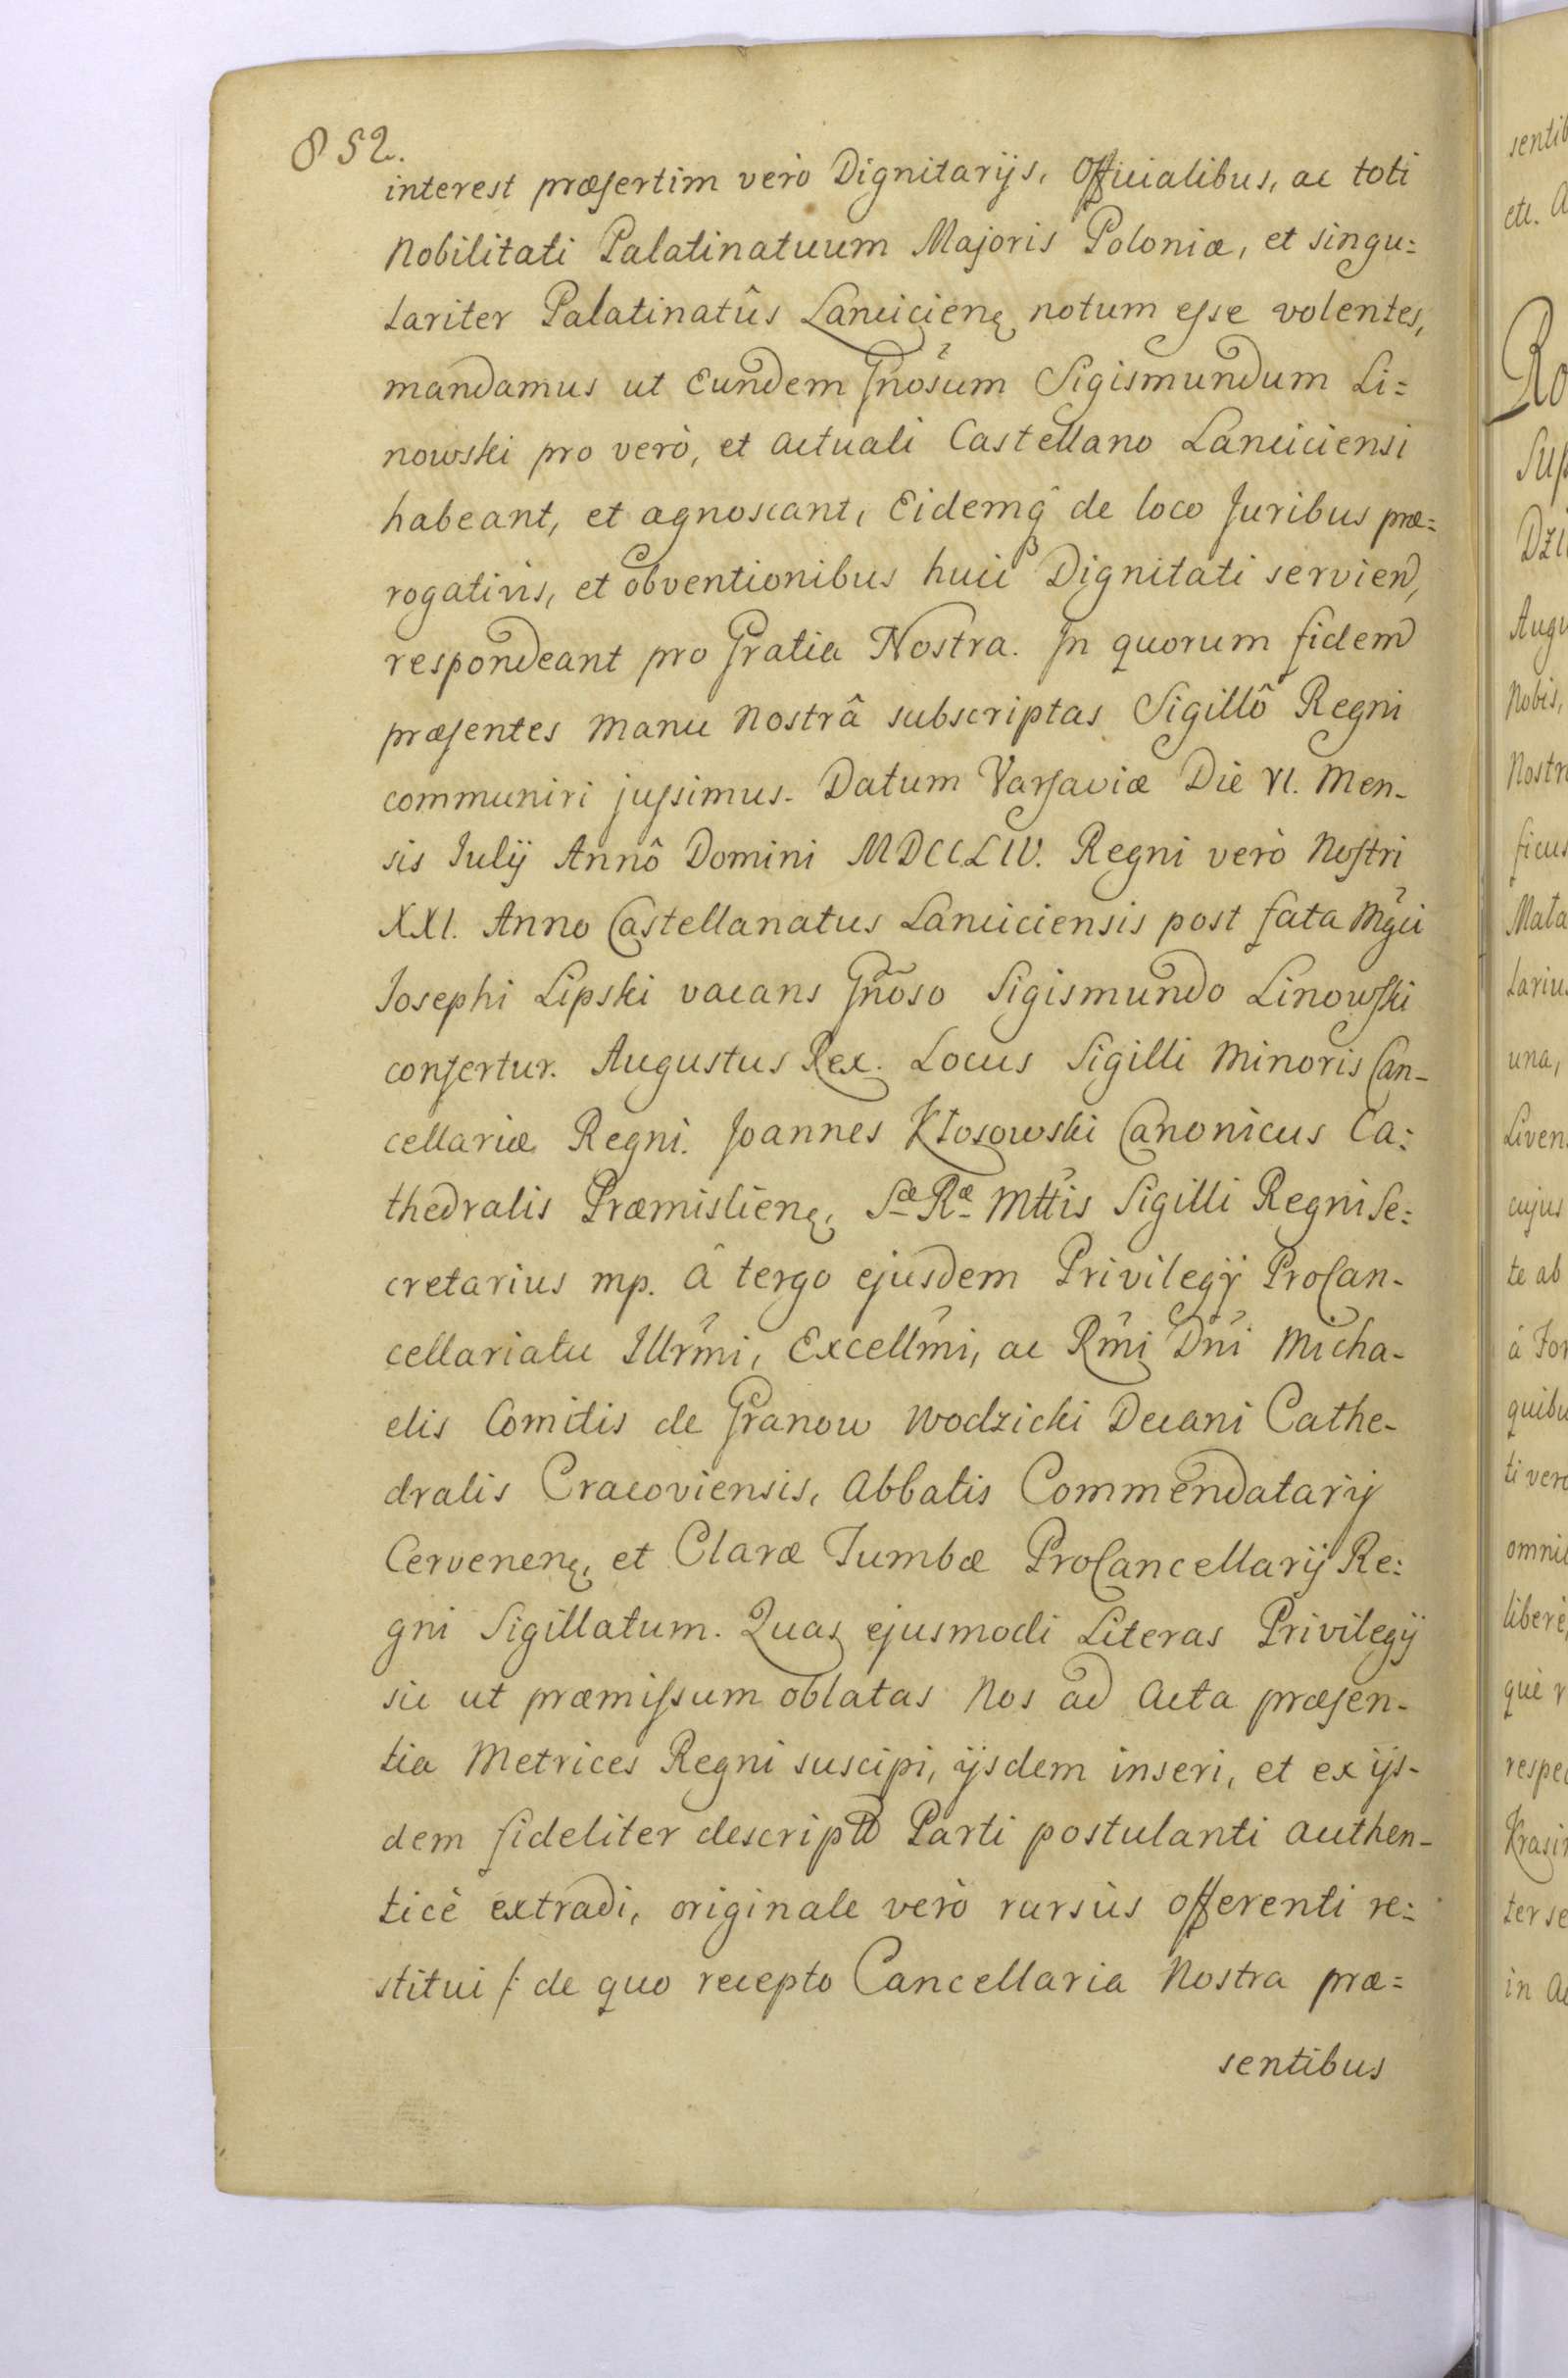 852.
interest præsertim verò Dignitarijs, Officialibus, ac toti
Nobilitati Palatinatuum Majoris Poloniæ, et singu=
lariter Palatinatûs Lancicienę notum esse volentes,
mandamus ut Eundem Gnõsum Sigismundum Li=
nowski pro verò, et actuali Castellano Lanciciensi
habeant, et agnoscant, Eidemq̂ de loco Juribus præ=
rogativis, et obventionibus huic Dignitati servien̄,
respondeant pro Gratia Nostra. In quorum fidem
præsentes Manu Nostrâ subscriptas Sigillô Regni
communiri jussimus. Datum Varsaviæ Die VI. Men-
sis Julij Annô Domini MDCCLIV. Regni verò Nostri
XXI. Anno Castellanatus Lanciciensis post fata Mg̃ci
Josephi Lipski vacans Gnõso Sigismundo Linowski
confertur. Augustus Rex. Locus Sigilli Minoris Can-
cellariæ Regni. Joannes Kłosowski Canonicus Ca:
thedralis Præmislienę, Sæ Ræ Mttis Sigilli Regni Se:
cretarius mp. â tergo ejusdem Privilegij ProCan-
cellariatu Illrm̃i, Excellm̃i, ac Rm̃i Dñi Micha-
elis Comitis de Granow Wodzicki Decani Cathe-
dralis Cracoviensis, Abbatis Commendatarij
Cervenenę, et Claræ Tumbæ ProCancellarij Re:
gni Sigillatum. Quas ejusmodi Literas Privilegij
sic ut præmissum oblatas Nos ad Acta præsen-
tia Metrices Regni suscipi, ijsdem inseri, et ex ijs-
dem fideliter descriptð Parti postulanti authen-
ticè extradi, originale verò rursùs offerenti re:
stitui /: de quo recepto Cancellaria Nostra præ=
sentibus